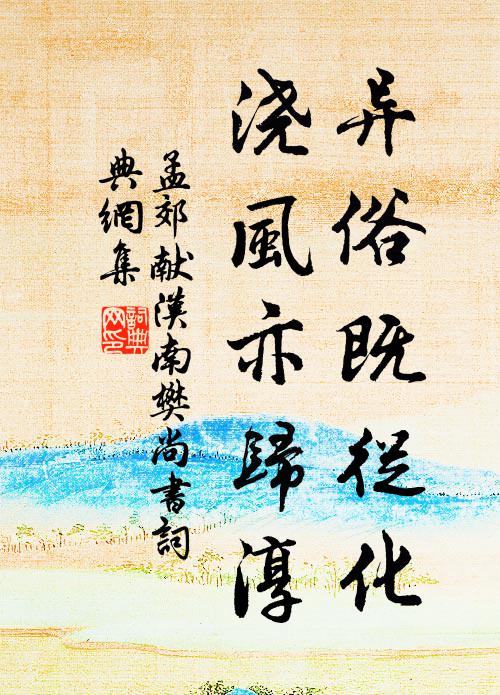 异俗既從化
浇風亦歸淳
孟郊献漢南樊尚書詞
典網集
詞典
网印